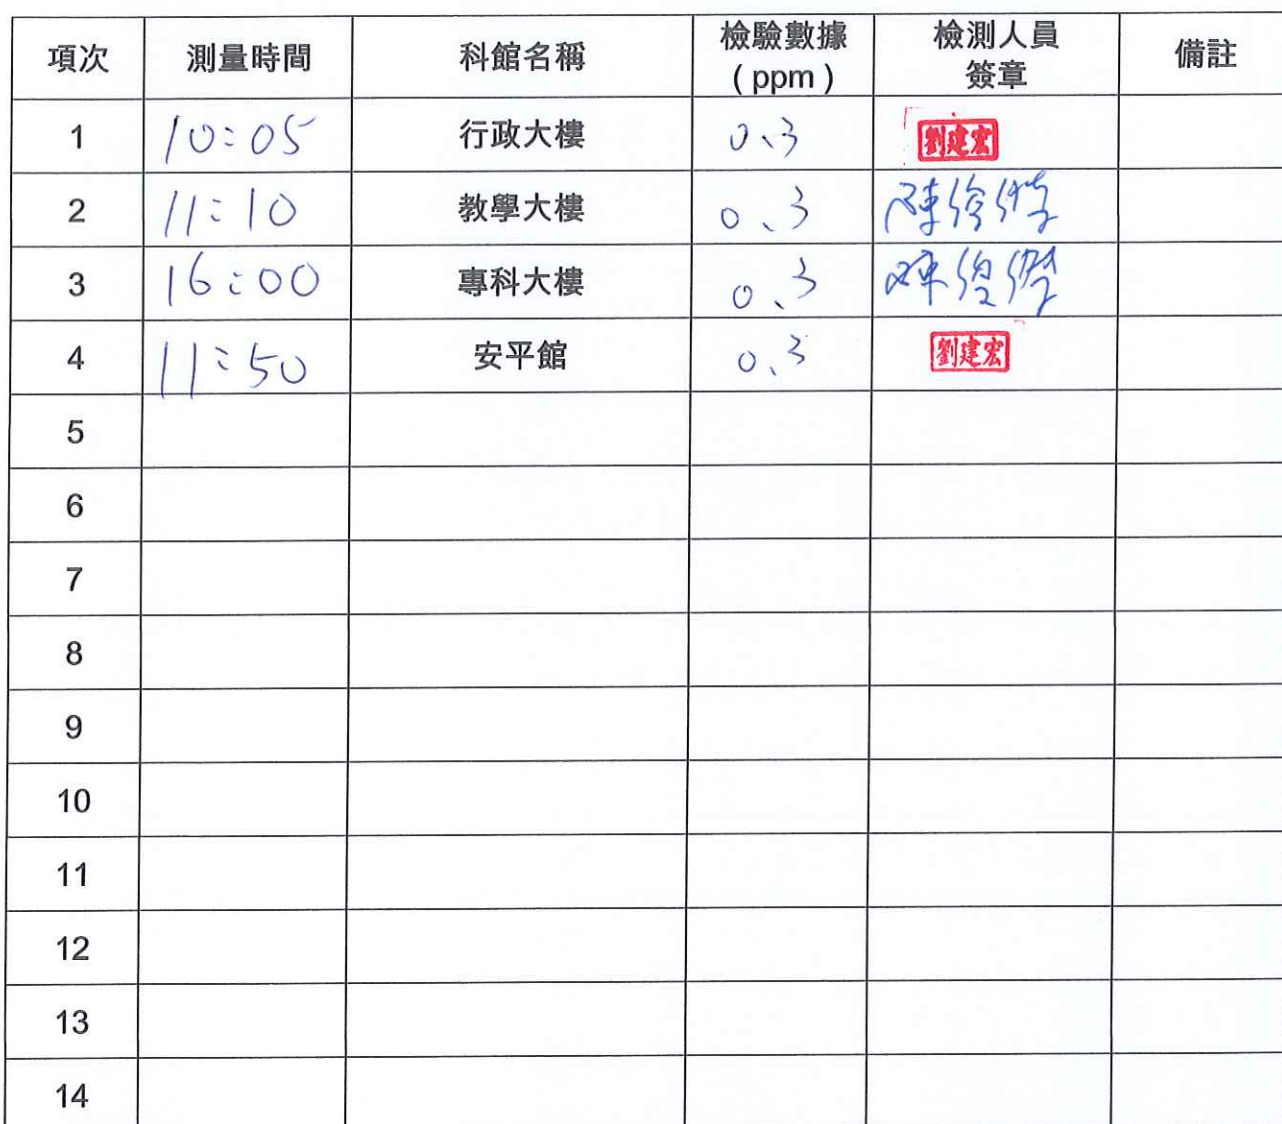 項次 測量時間 科館名稱 檢驗數據 ( ppm ) 檢測人員 簽章 備註
1 10:05 行政大樓 0.3 劉建宏
2 11:10 教學大樓 0.3 陳俊傑
3 16:00 專科大樓 0.3 陳俊傑
4 11:50 安平館 0.3 劉建宏
5
6
7
8
9
10
11
12
13
14